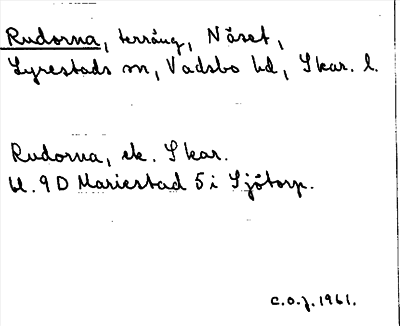 Rudorna, terräng, Näset,
Lyrestads sn, Vadsbo hd, Skar. l.
Rudorna, ek. Skar.
bl. 9D Mariestad 5i Sjötorp.
C.O.J. 1961.